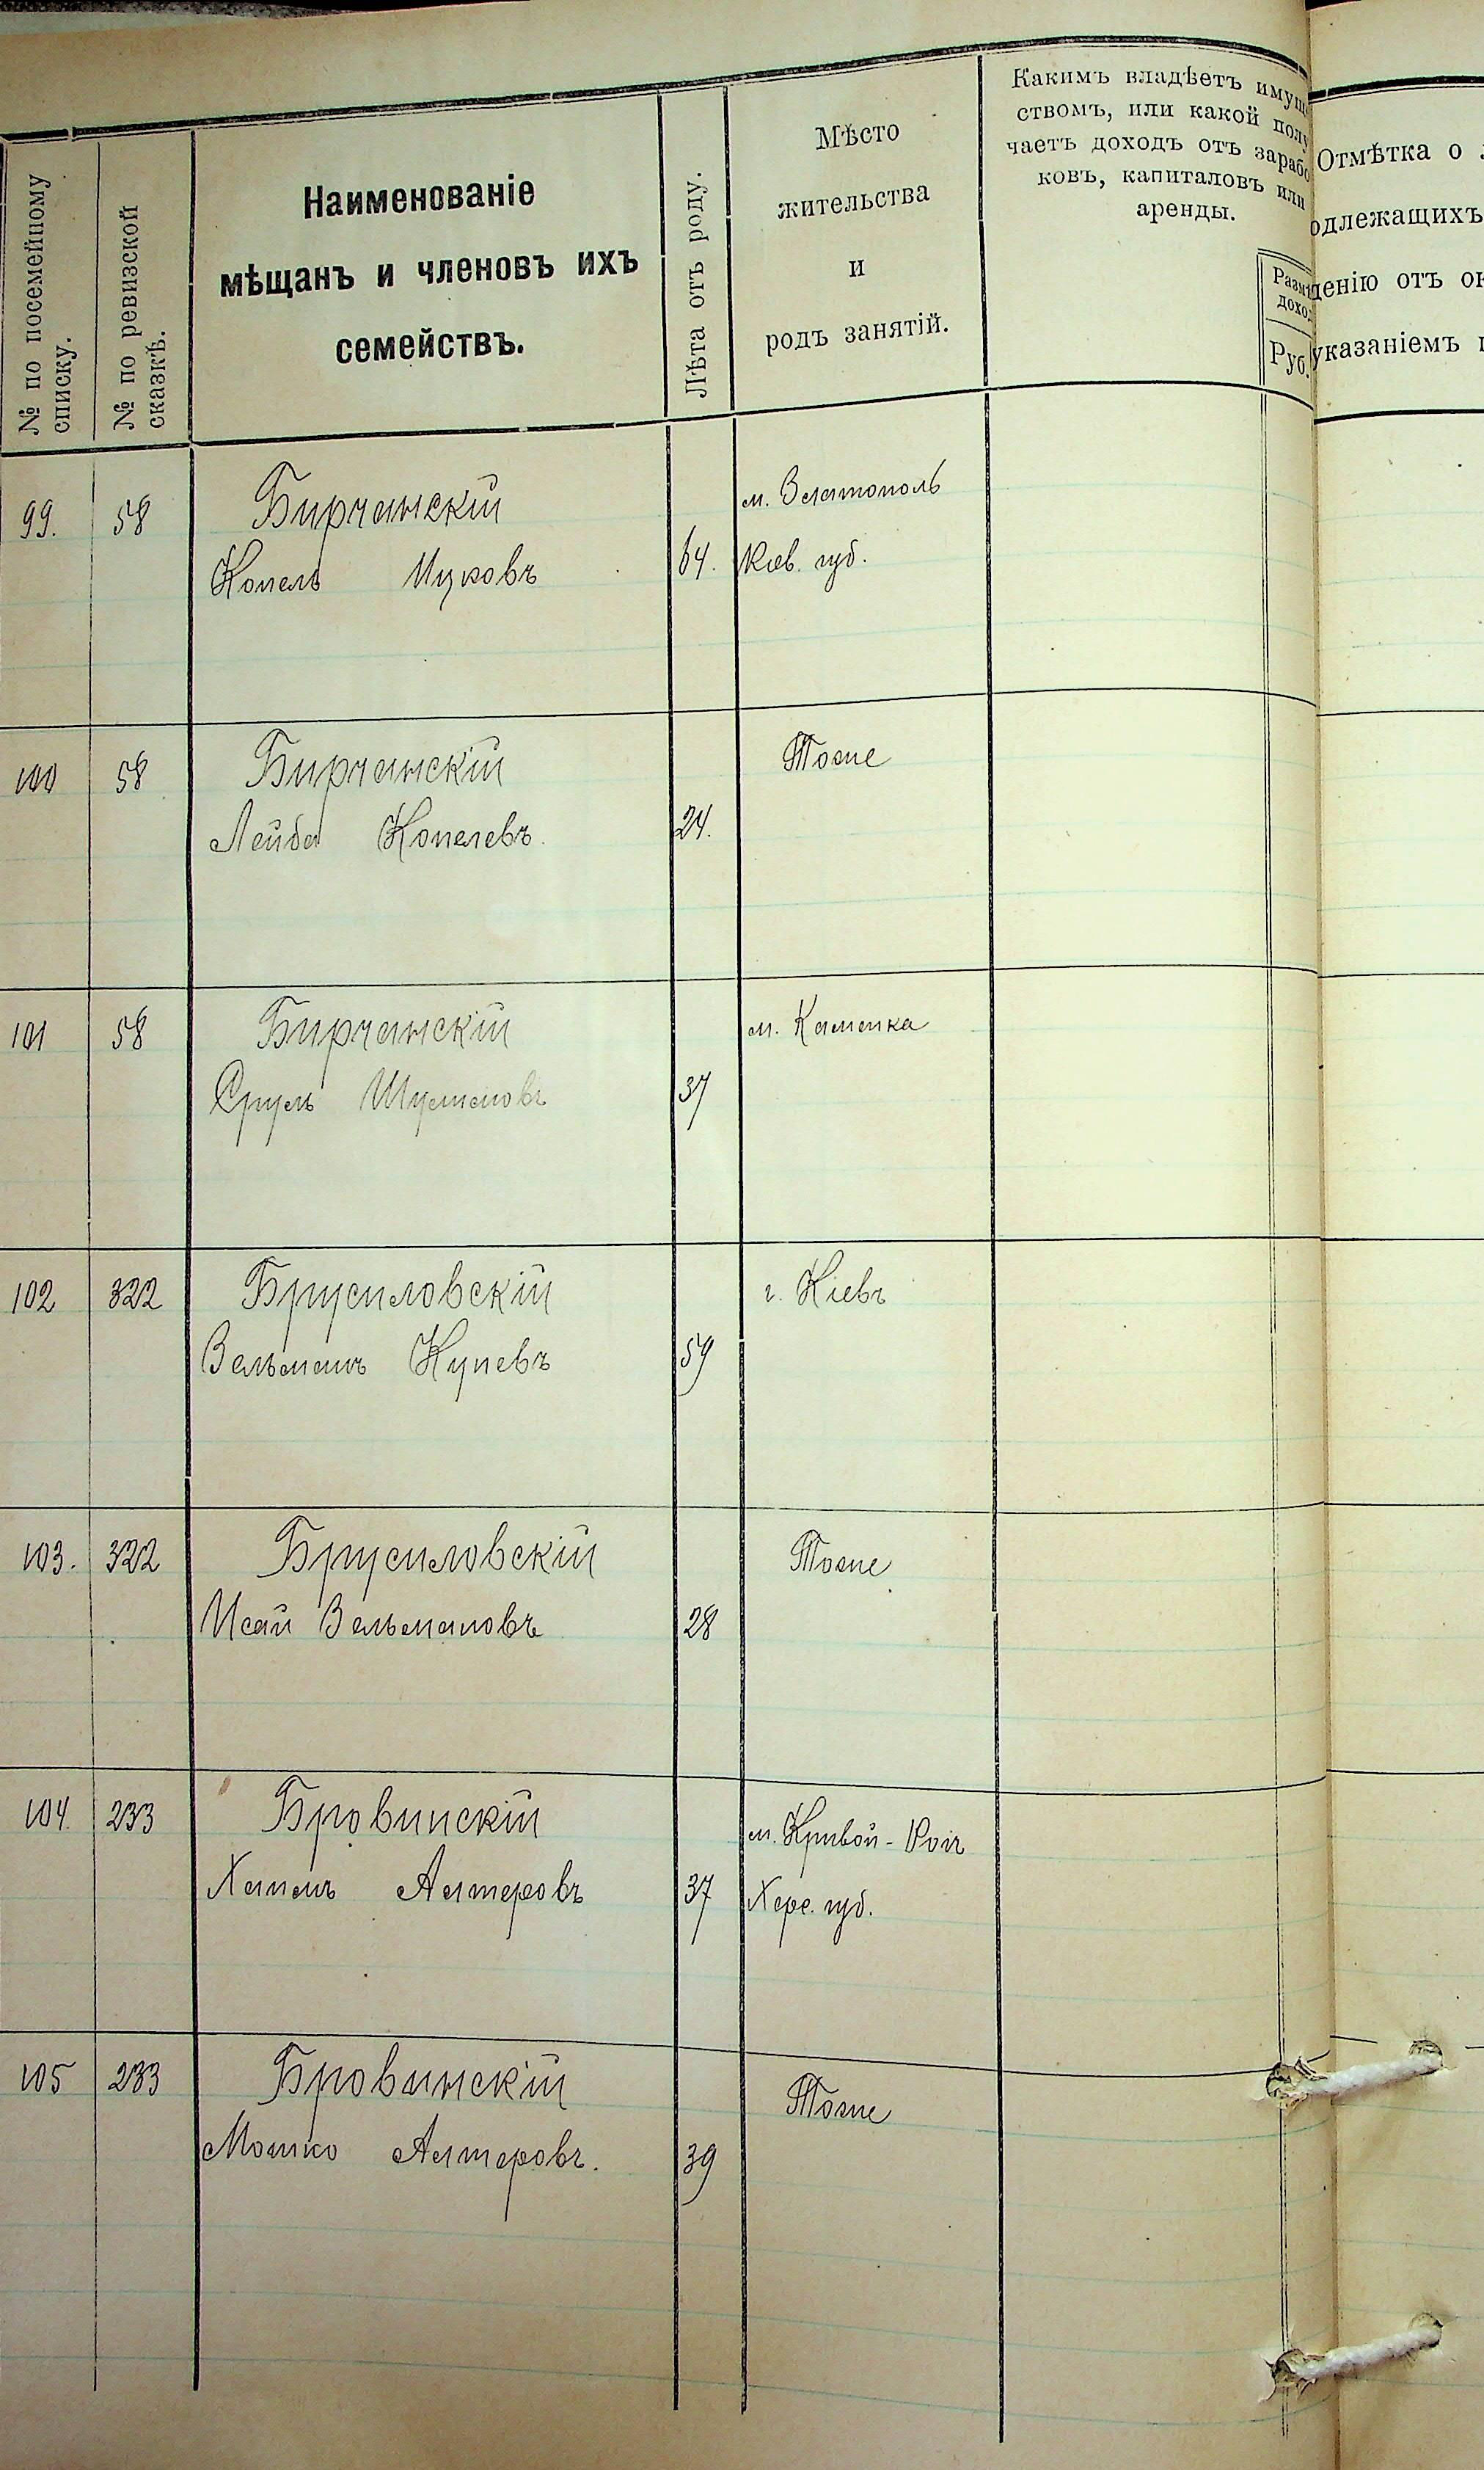 № по посемейному
списку.
№ по ревизской
сказкѣ.
Наименованіе
мѣщанъ и членовъ ихъ
семействъ.
Лѣта отъ роду.
Мѣсто
жительства
и
родъ занятій.
Какимъ владѣетъ имуще
ствомъ, или какой полу
чаетъ доходъ отъ зарабо
ковъ, капиталовъ или
аренды.
Размѣ
доход
Руб.
Отмѣтка о
одлежащихъ
денію отъ ок
указаніемъ
99. 58 Бирчанскій м. Златополь
Копель Ицковъ 64. Кіев. губ.
100 58 Бирчанскій Тоже
Лейба Копелевъ 24.
101 58 Бирчанскій м. Каменка
Сруль Шулимовъ 37
102 322 Брусиловскій г. Кіевъ
Вельманъ Купевъ 59
103. 322 Брусиловскій Тоже
Исай Вельмановъ 28
104. 233 Бровинскій м. Кривой-Рогъ
Хаимъ Алтеровъ 37 Херс. губ.
105 233 Бровинскій Тоже
Мошко Алтеровъ. 39